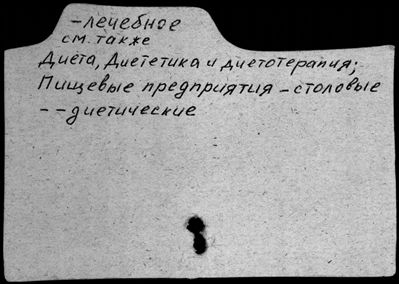 -лечебное
см. также
Диета, Диететика и диетотерапия;
Пищевые предприятия - столовые
- - диетические